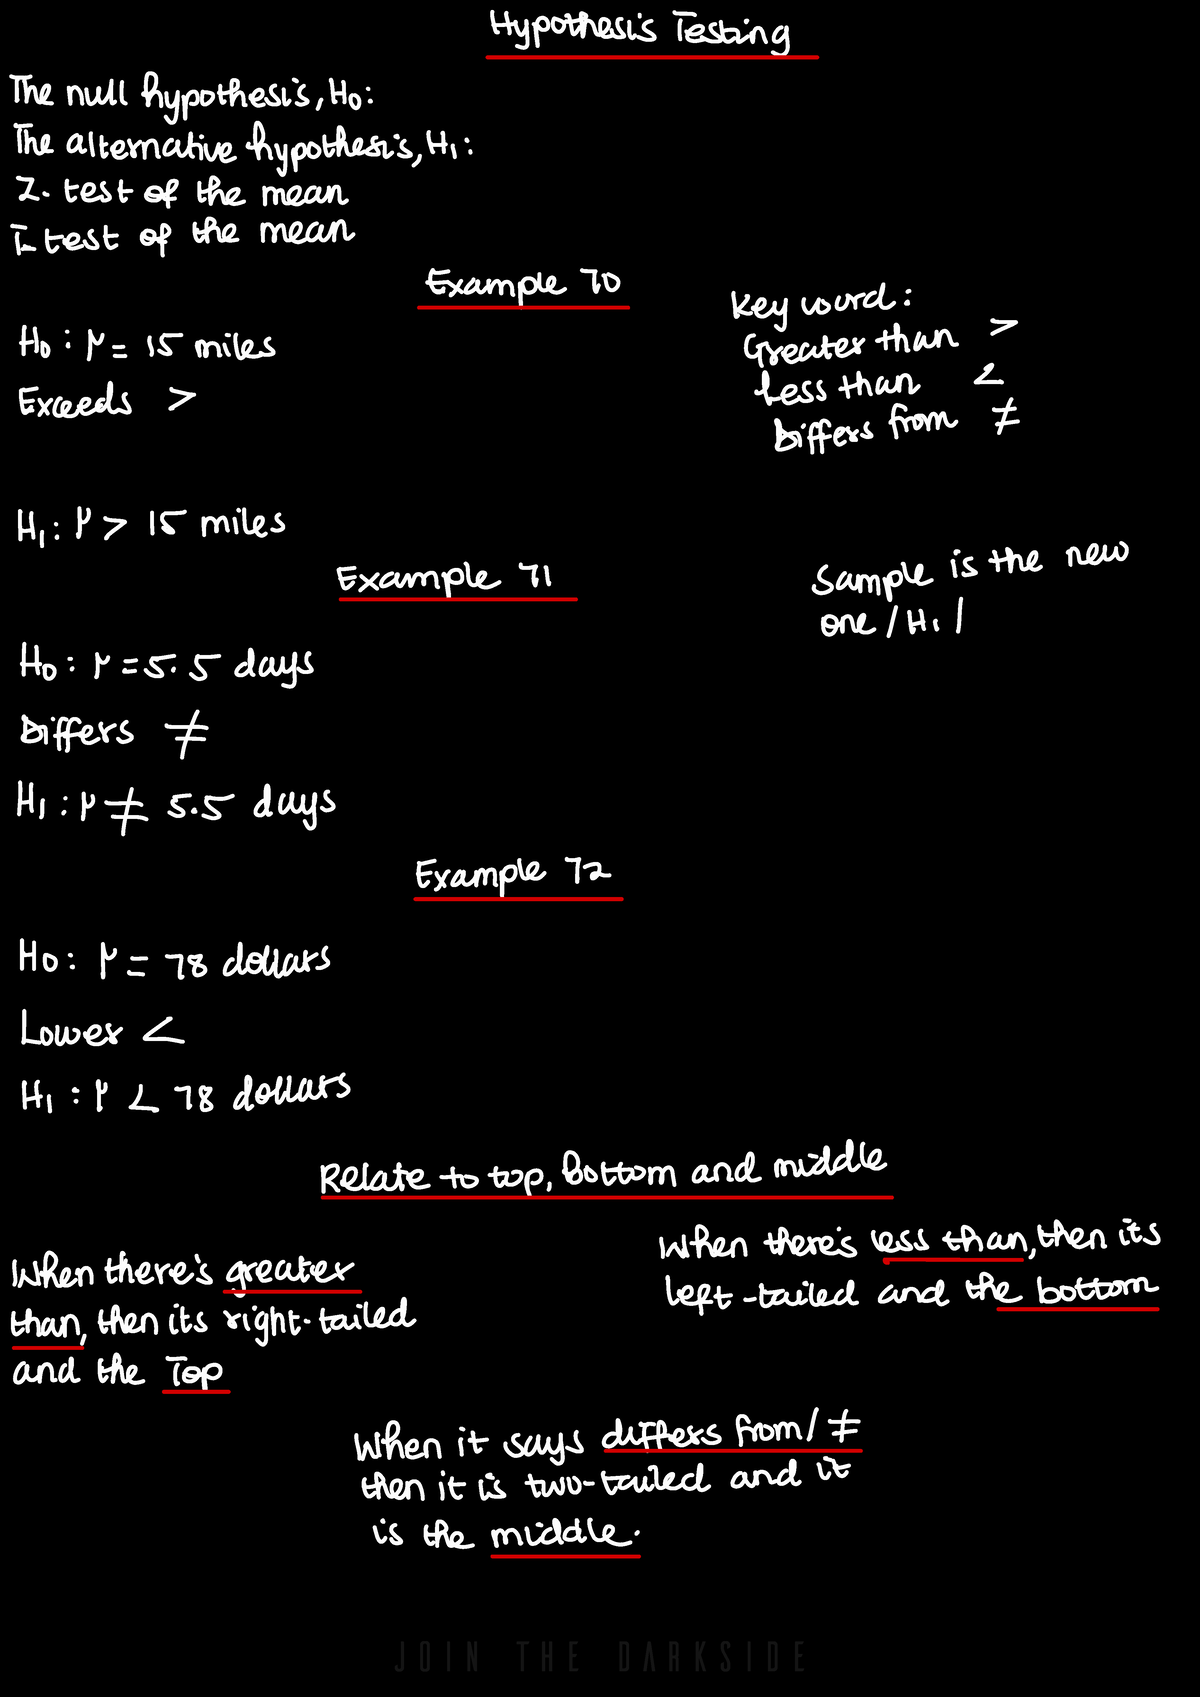 Hypothesis Testing
The null hypothesis, H₀:
The alternative hypothesis, H₁:
Z- test of the mean
T- test of the mean
Example 70
H₀: μ = 15 miles
Exceeds >
H₁: μ > 15 miles
Key word:
Greater than >
Less than <
Differs from ≠
Example 71
Sample is the new
one /H₁/
H₀: μ = 5.5 days
Differs ≠
H₁: μ ≠ 5.5 days
Example 72
H₀: μ = 78 dollars
Lower <
H₁: μ < 78 dollars
Relate to top, bottom and middle
When there's greater
than, then its right-tailed
and the Top
When there's less than, then its
left-tailed and the bottom
When it says differs from/ ≠
then it is two-tailed and it
is the middle.
JOIN THE DARKSIDE